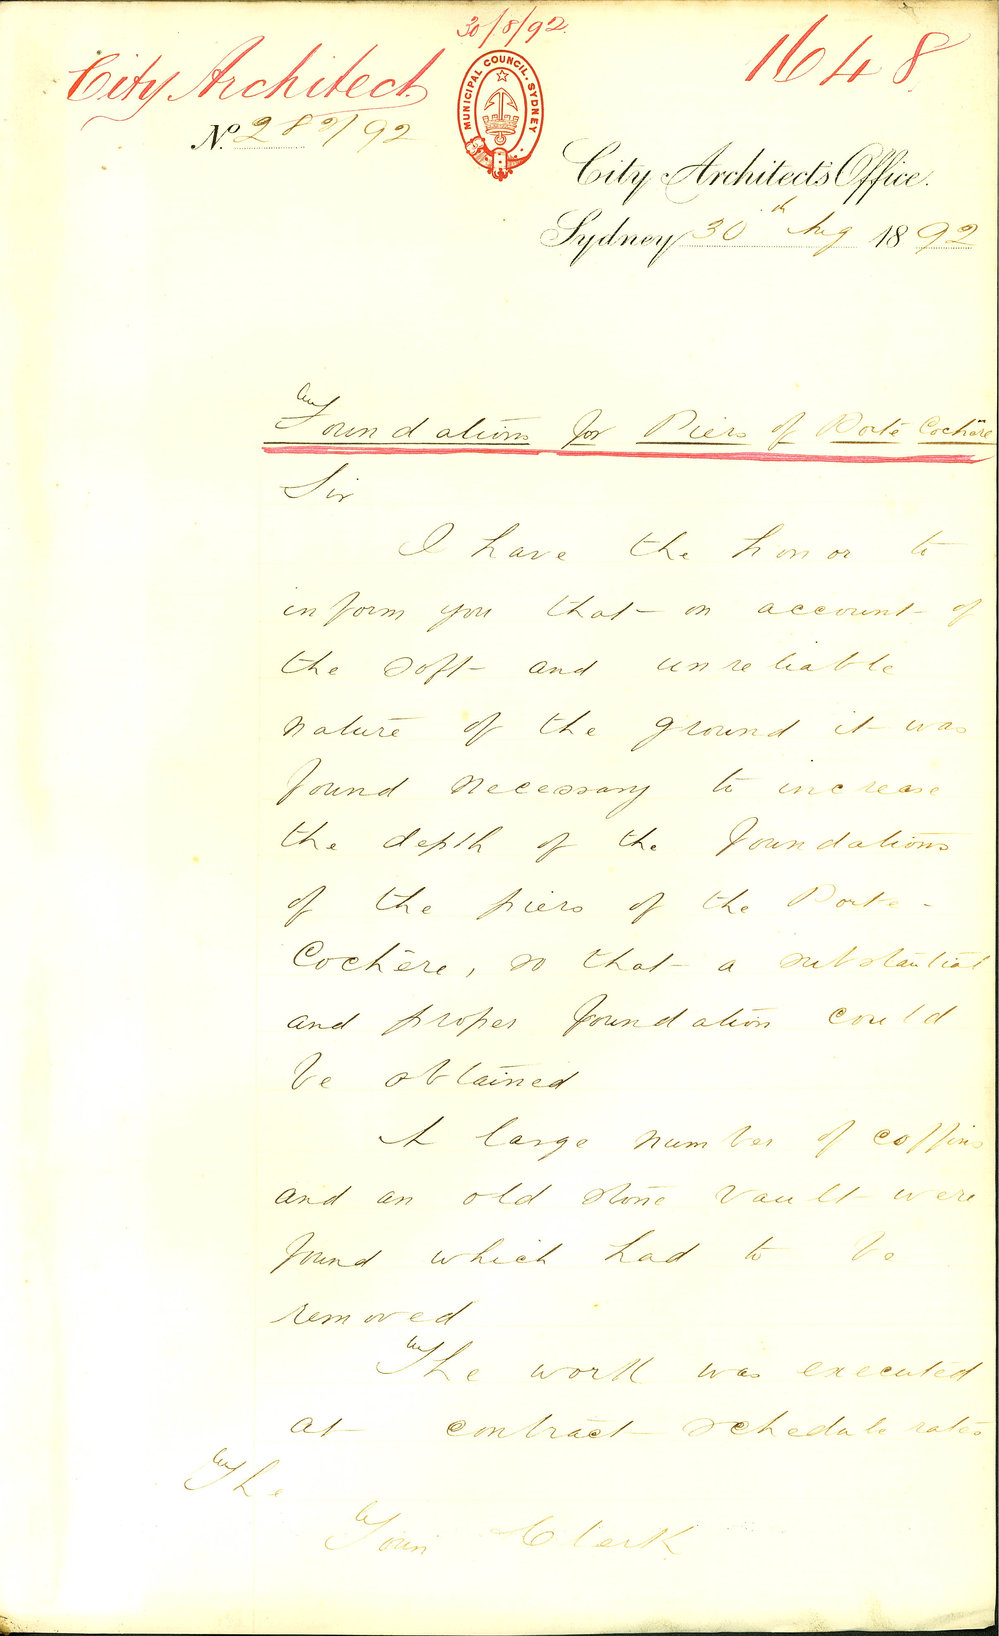 30/8/92.
1648
City Architect
MUNICIPAL COUNCIL. SYDNEY
No. 282/92
City Architect's Office.
Sydney 30th Aug 1892
Foundations for Piers of Porte Cochère
Sir
I have the honor to
inform you that on account of
the soft and unreliable
nature of the ground it was
found necessary to increase
the depth of the foundations
of the piers of the Porte-
Cochère, so that a substantial
and proper foundation could
be obtained
A large number of coffins
and an old stone vault were
found which had to be
removed
The work was executed
at contract schedule rates
The
Town Clerk